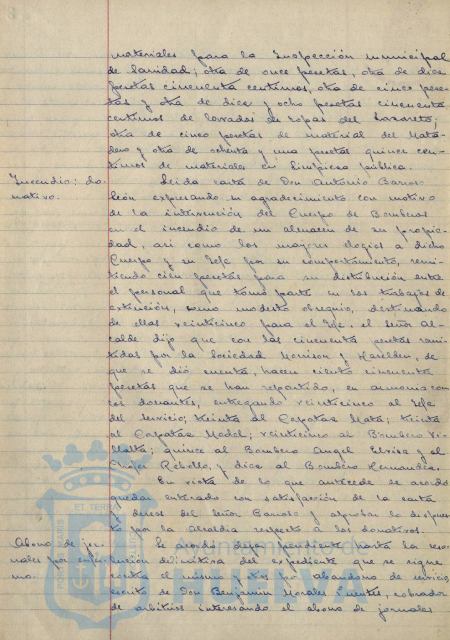 materiales para la Inspección municipal
de Sanidad; otra de once pesetas, otra de diez
pesetas cincuenta centimos, otra de cinco pese-
tas y otra de diez y ocho pesetas cincuenta
centimos de lavados de ropas del Lazareto;
otra de cinco pesetas de material del Mata-
dero y otra de ochenta y una pesetas quince cen-
timos de materiales en limpieza pública.
Incendio: do-
nativo.
Leida carta de Don Antonio Baroso
León expresando su agradecimiento con motivo
de la intervención del Cuerpo de Bomberos
en el incendio de un almacen de su propie-
dad, así como los mayores elogios a dicho
Cuerpo y su Jefe por su comportamiento, remi-
tiendo cien pesetas para su distribución entre
el personal que tomó parte en los trabajos de
extinción, como modesto obsequio, destinando
de ellas veinticinco para el Jefe. el señor Al-
calde dijo que con las cincuenta pesetas remi-
tidas por la Sociedad Morrison y Haselden, de
que se dió cuenta, hacen ciento cincuenta
pesetas que se han repartido, en armonia con
los donantes, entregando veinticinco al Jefe
del Servicio; treinta al Capataz Mata; treinta
al Capataz Model; veinticinco al Bombero Vi-
llalta; quince al Bombero Angel Elvira y al
Rebollo, y diez al Bombero Hernandez.
En vista de lo que antecede se acordó
quedar enterado con satisfacción de la carta
y deseos del Señor Baroso y aprobar lo dispues-
to por la Alcaldia respecto a los donativos.
Abono de jor-
nales por enfer-
mo.
Se acordó dejar pendiente hasta la reso-
lución definitiva del expediente que se sigue
contra el mismo por abandono de servicio,
escrito de Don Benjamin Morales Fuentes, cobrador
de arbitrios interesando el abono de jornales
Ayuntamiento de